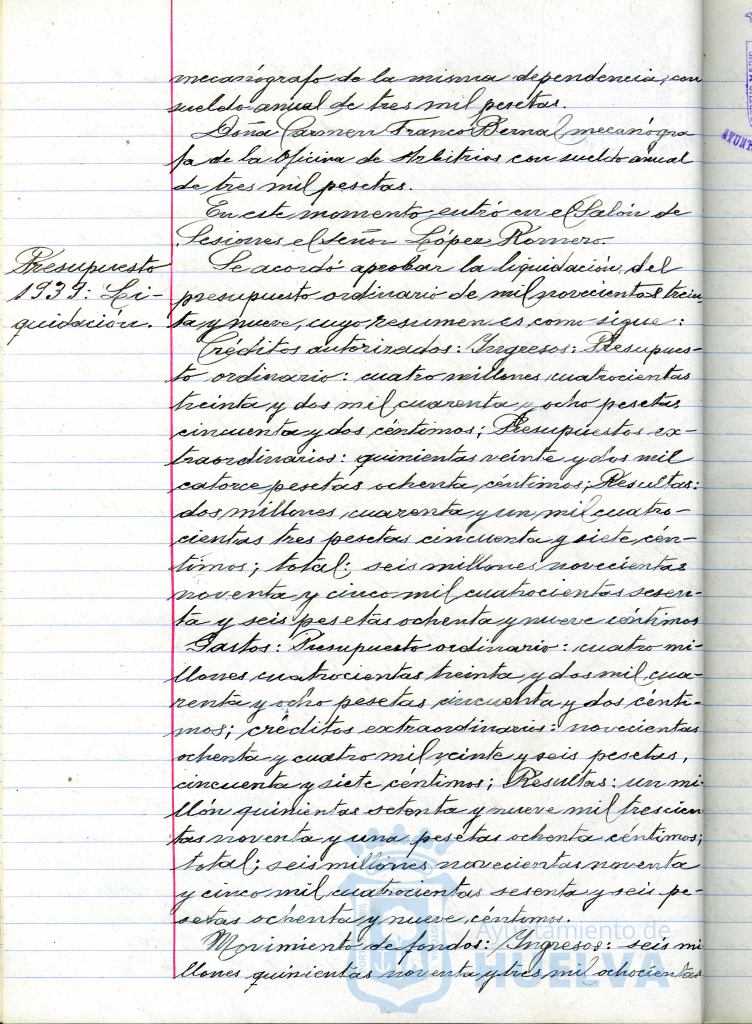 mecanógrafo de la misma dependencia, con
sueldo anual de tres mil pesetas.
Doña Carmen Franco Bernal, mecanógra
fa de la Oficina de Arbitrios con sueldo anual
de tres mil pesetas.
En este momento entró en el Salón de
Sesiones el señor López Romero.
Presupuesto
1939: Li-
quidación.
Se acordó aprobar la liquidación del
presupuesto ordinario de mil novecientos trein
ta y nueve, cuyo resumen es como sigue:
Créditos autorizados: Ingresos: Presupues-
to ordinario: cuatro millones cuatrocientas
treinta y dos mil cuarenta y ocho pesetas
cincuenta y dos céntimos; Presupuestos ex-
traordinarios: quinientas veinte y dos mil
catorce pesetas ochenta céntimos; Resultas:
dos millones cuarenta y un mil cuatro-
cientas tres pesetas cincuenta y siete cén-
timos; total: seis millones novecientas
noventa y cinco mil cuatrocientas sesen-
ta y seis pesetas ochenta y nueve céntimos
Gastos: Presupuesto ordinario: cuatro mi-
llones cuatrocientas treinta y dos mil cua-
renta y ocho pesetas cincuenta y dos cénti-
mos; créditos extraordinarios: novecientas
ochenta y cuatro mil veinte y seis pesetas,
cincuenta y siete céntimos; Resultas: un mi-
llón quinientas setenta y nueve mil trescien
tas noventa y una pesetas ochenta céntimos;
total; seis millones novecientas noventa
y cinco mil cuatrocientas sesenta y seis pe-
setas ochenta y nueve céntimos.
Movimiento de fondos: Ingresos: seis mi
llones quinientas noventa y tres mil ochocientas
Ayuntamiento de
HUELVA